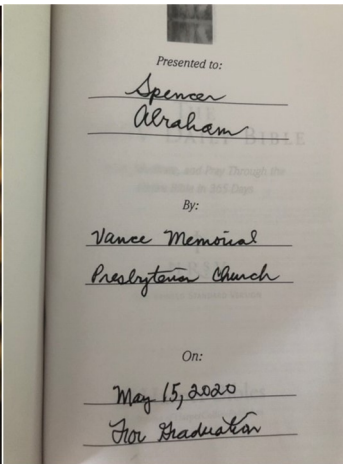 Presented to:
Spencer
Abraham
By:
Vance Memorial
Presbyterian Church
On:
May 15, 2020
For Graduation